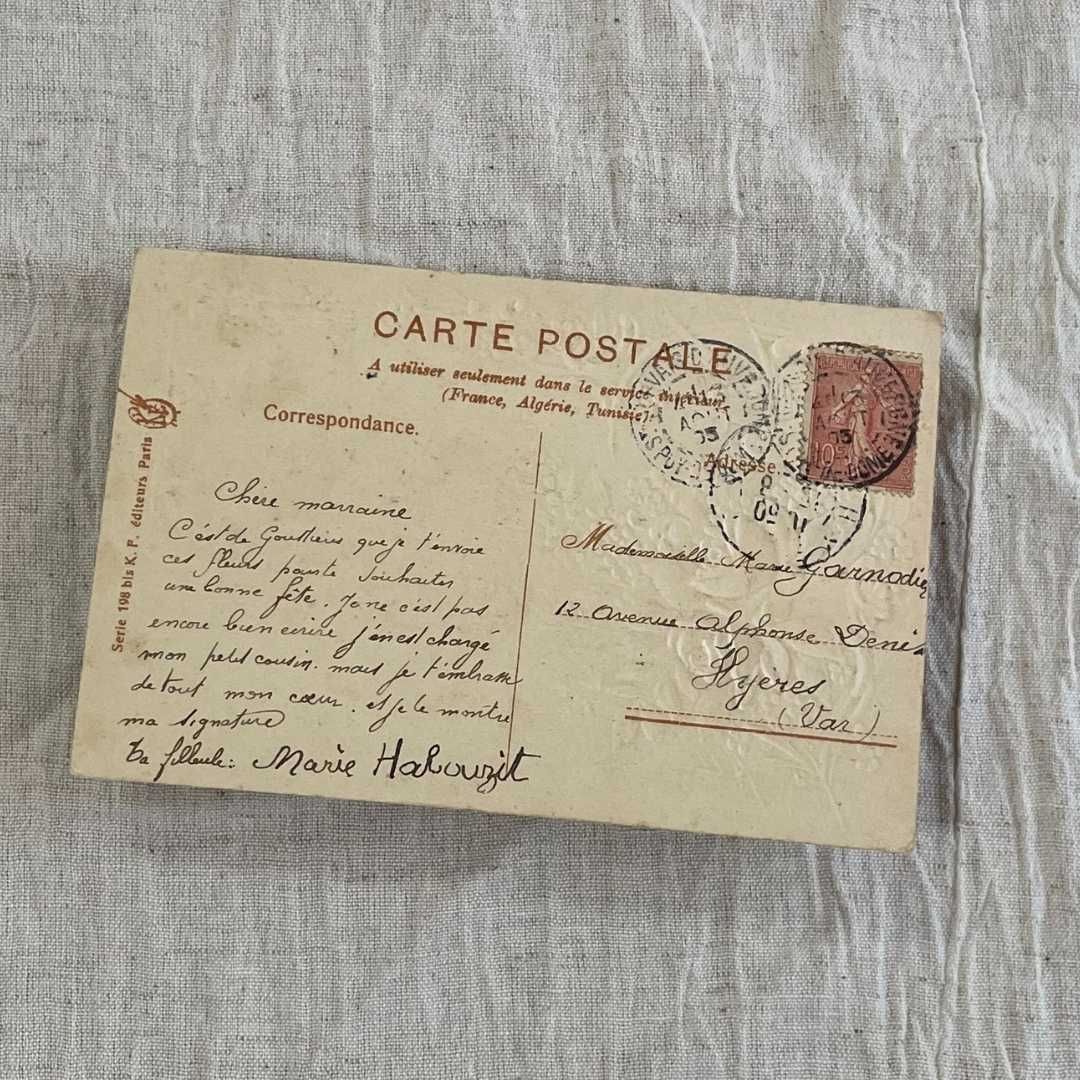 CARTE POSTALE
A utiliser seulement dans le service intérieur
(France, Algérie, Tunisie)
Correspondance.
Adresse
Serie 198 bis K. F. éditeurs Paris
Chère marraine
C'ést de que je t'envoie
ces fleurs pour te souhaiter
une bonne fête. Je ne c'est pas
encore bien écrire j'en est chargé
mon petit cousin. mais je t'embrasse
de tout mon cœur. et je te montre
ma signature
Ta filleule: Marie Halouzit
Mademoiselle Marie Garnodier
12 avenue Alphonse Denis
Hyères
(Var)
AOUT
05
10